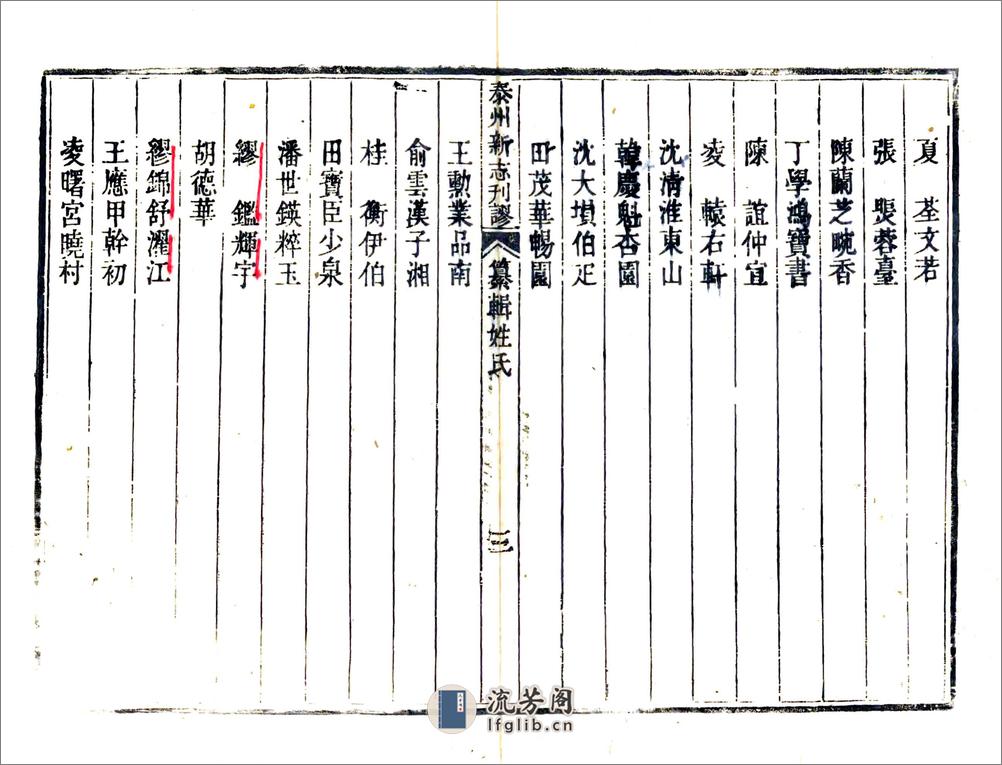 夏　荃文若
張　裴蓉臺
陳蘭芝畹香
丁學鴻寶書
陳　誼仲宣
凌　轅右軒
沈淸淮東山
韓慶魁杏園
沈大塤伯疋
田茂華暢園
泰州新志刊謬　纂輯姓氏　三
王勳業品南
俞雲漢子湘
桂　蘅伊伯
田寶臣少泉
潘世鍈粹玉
繆　鑑輝宇
胡德華
繆錦舒濯江
王應甲幹初
凌曙宮曉村
流芳阁
lfglib.cn